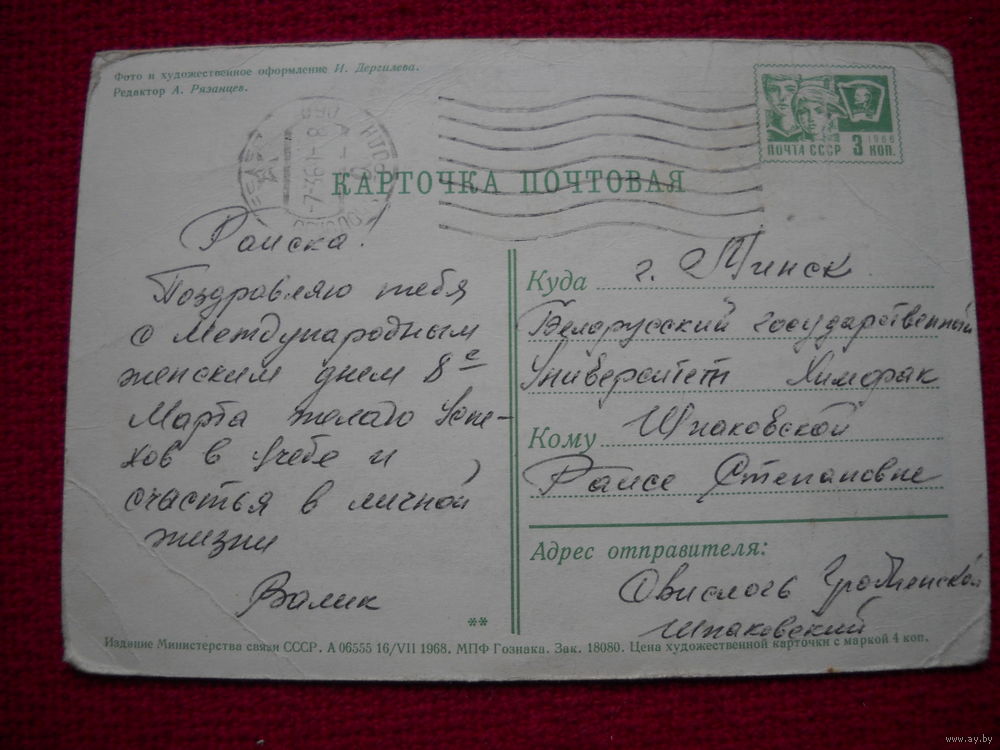 Фото и художественное оформление И. Дергилева.
Редактор А. Рязанцев.
1966
ПОЧТА СССР 3 КОП.
КАРТОЧКА ПОЧТОВАЯ
Раиска.
Поздравляю тебя
с Международным
женским днем 8 с
Марта желаю Успе-
хов в учебе и
счастья в личной
жизни
Валик
**
Куда г. Минск
Белорусский государственный
Университет Химфак
Кому Шпаковской
Раисе Степановне
Адрес отправителя:
Свислочь
Шпаковский
Издание Министерства связи СССР. А 06555 16/VII 1968. МПФ Гознака. Зак. 18080. Цена художественной карточки с маркой 4 коп.
www.ay.by